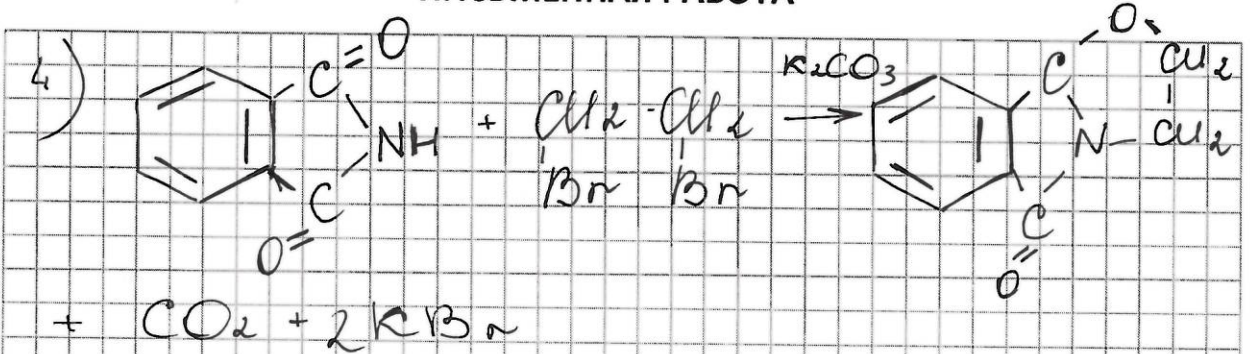 4)
C=O
NH
C
O=
+ CH2-CH2
Br Br
K2CO3
→
C-O-CH2
N-CH2
C
O=
+ CO2 + 2KBr